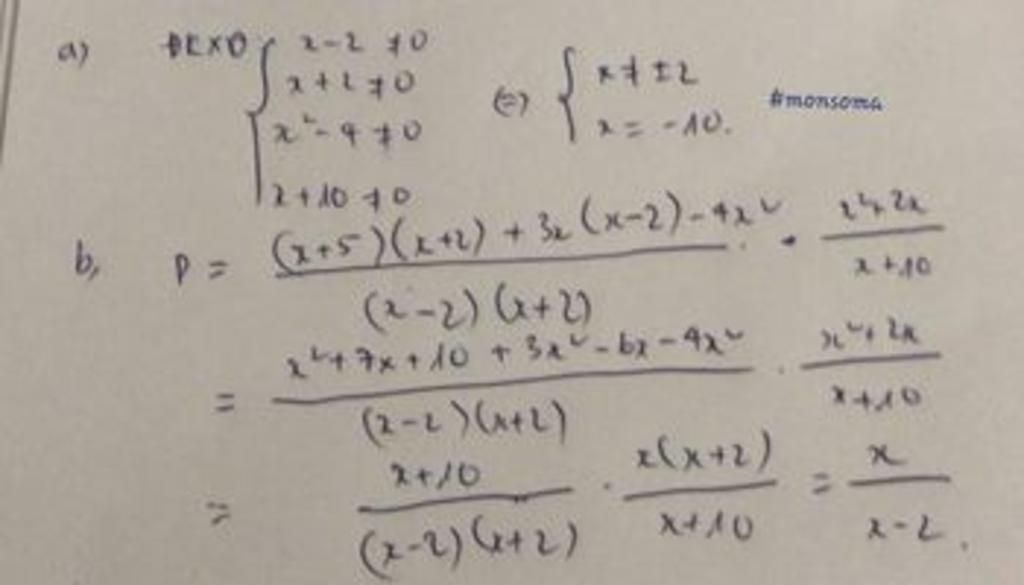 a) ĐKXĐ { x-2 ≠0
x+2 ≠0
x²-4 ≠0
x+10 ≠0
(=) { x≠ ±2
x = -10.
#monsoma
b, P = ((x+5)(x+2) + 3x(x-2) - 4x²) / ((x-2)(x+2)) . (x²+2x) / (x+10)
= (x²+7x+10 + 3x² - 6x - 4x²) / ((x-2)(x+2)) . (x²+2x) / (x+10)
= (x+10) / ((x-2)(x+2)) . x(x+2) / (x+10) = x / (x-2) .